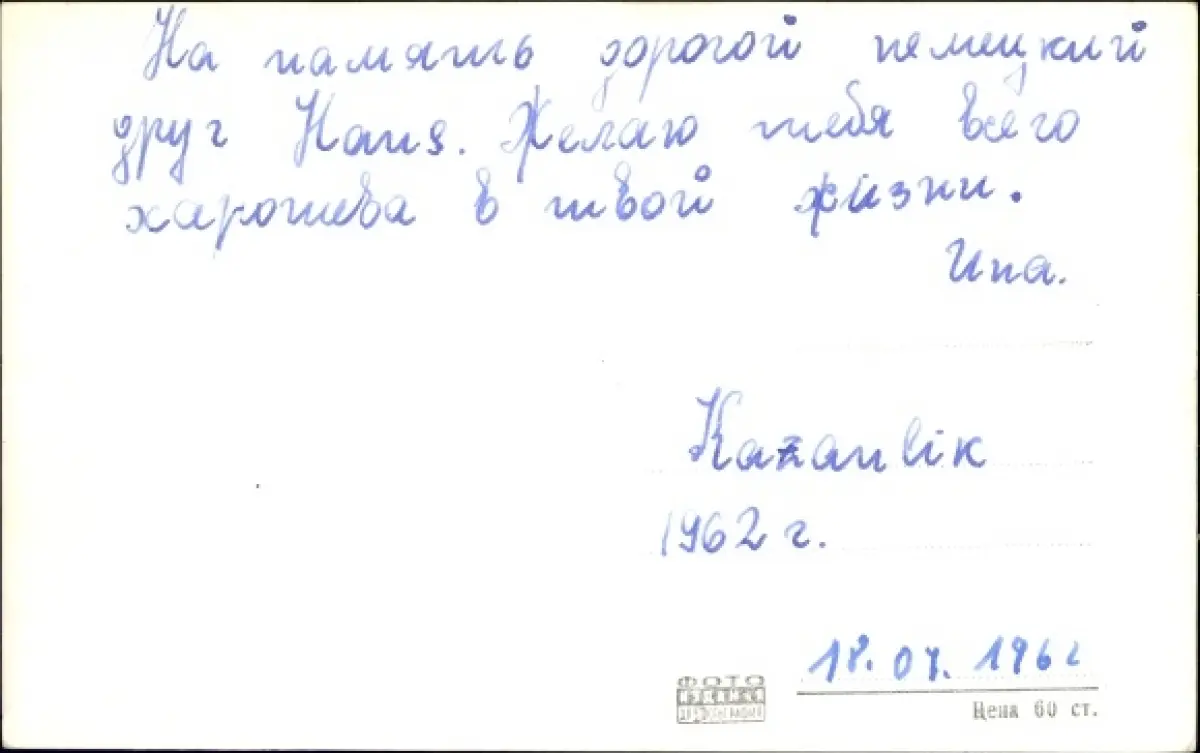 На память дорогой немецкий
друг Hans. Желаю тебя всего
харошева в твой жизни.
Ина.
Kazanlik
1962 г.
18.07.1962
ФОТО
Цена 60 ст.